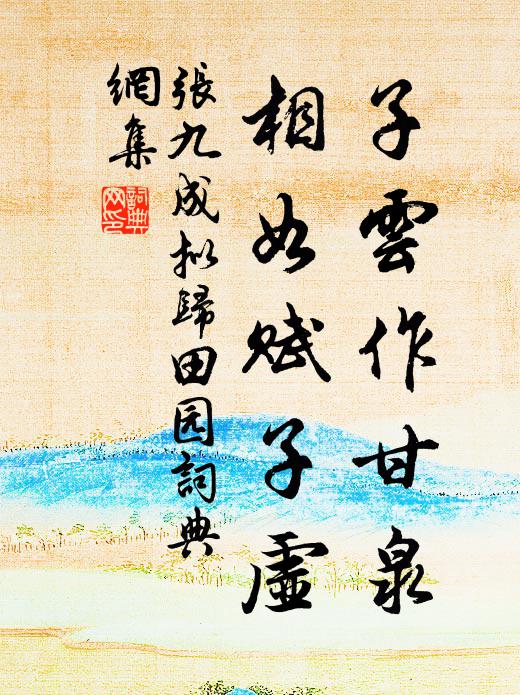 子雲作甘泉
相如賦子虛
張九成拟歸田园詞典
網集
詞典
网印